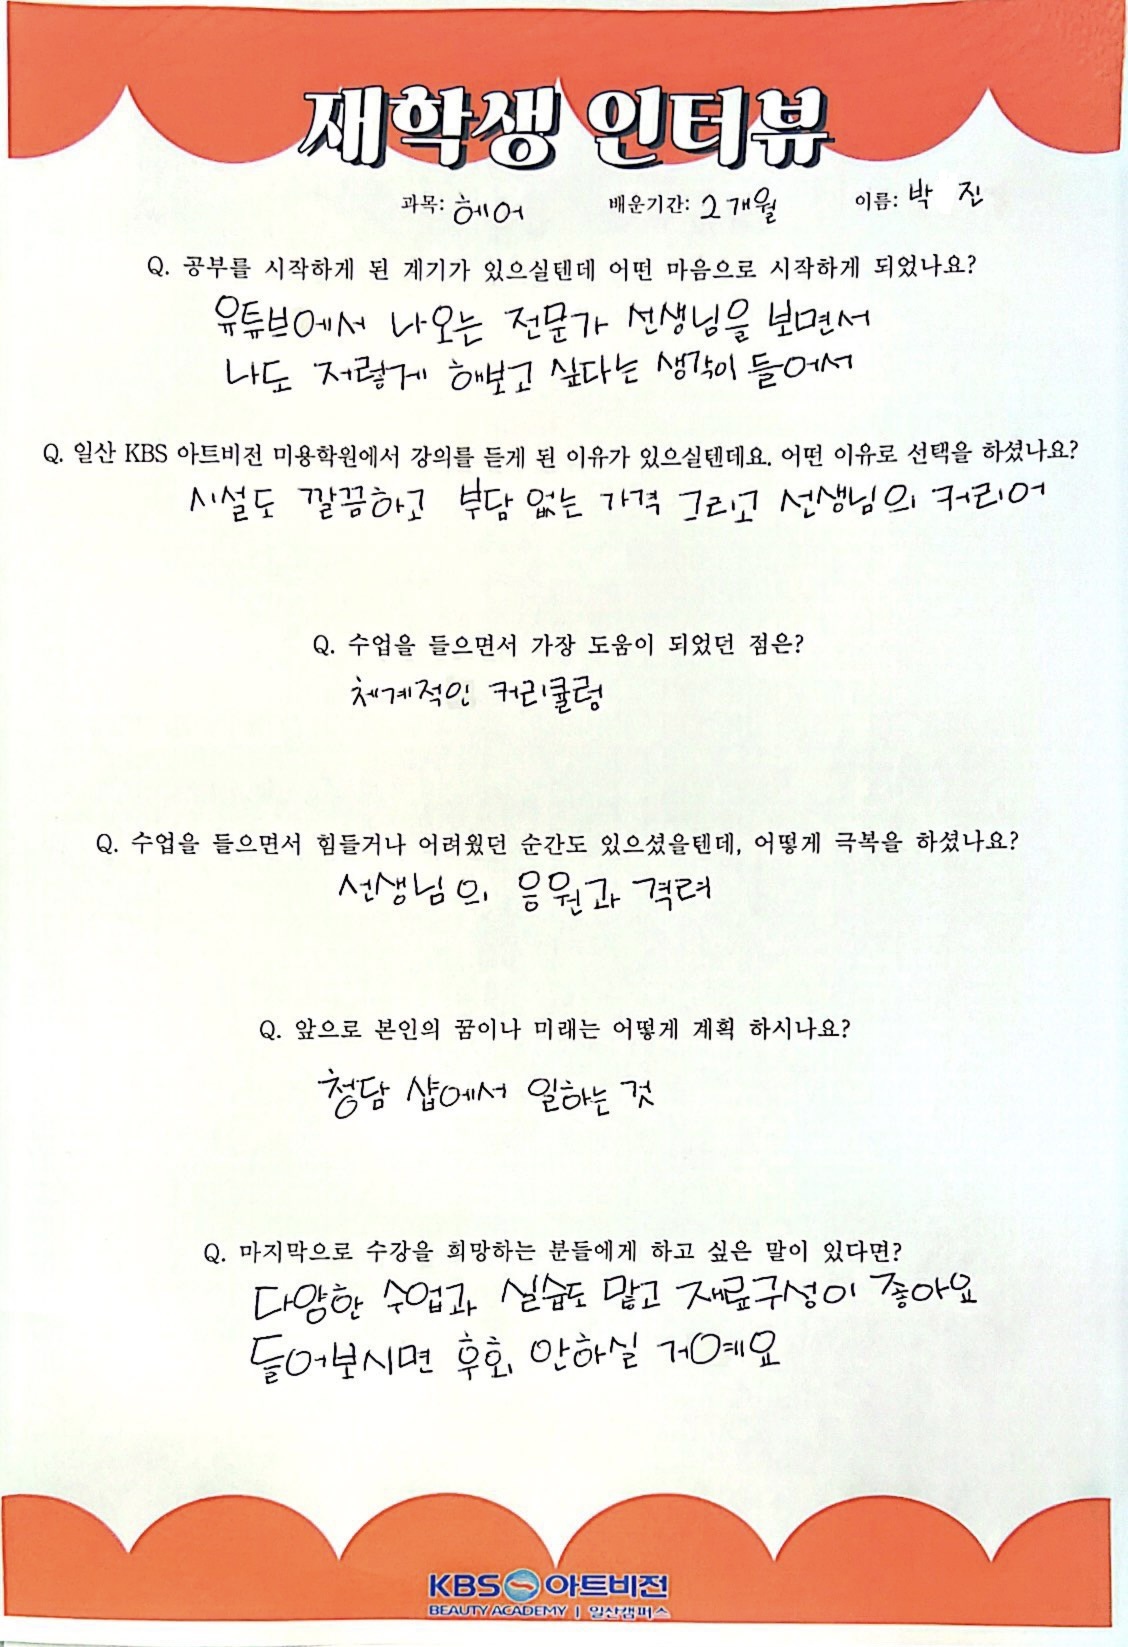 재학생 인터뷰
과목: 헤어 배운기간: 2개월 이름: 박 진
Q. 공부를 시작하게 된 계기가 있으실텐데 어떤 마음으로 시작하게 되었나요?
유튜브에서 나오는 전문가 선생님을 보면서
나도 저렇게 해보고 싶다는 생각이 들어서
Q. 일산 KBS 아트비전 미용학원에서 강의를 듣게 된 이유가 있으실텐데요. 어떤 이유로 선택을 하셨나요?
시설도 깔끔하고 부담 없는 가격 그리고 선생님의 커리어
Q. 수업을 들으면서 가장 도움이 되었던 점은?
체계적인 커리큘렁
Q. 수업을 들으면서 힘들거나 어려웠던 순간도 있으셨을텐데, 어떻게 극복을 하셨나요?
선생님의 응원과 격려
Q. 앞으로 본인의 꿈이나 미래는 어떻게 계획 하시나요?
청담 샵에서 일하는 것
Q. 마지막으로 수강을 희망하는 분들에게 하고 싶은 말이 있다면?
다양한 수업과 실습도 많고 재료구성이 좋아요
들어보시면 후회 안하실 거예요
KBS 아트비전
BEAUTY ACADEMY | 일산캠퍼스